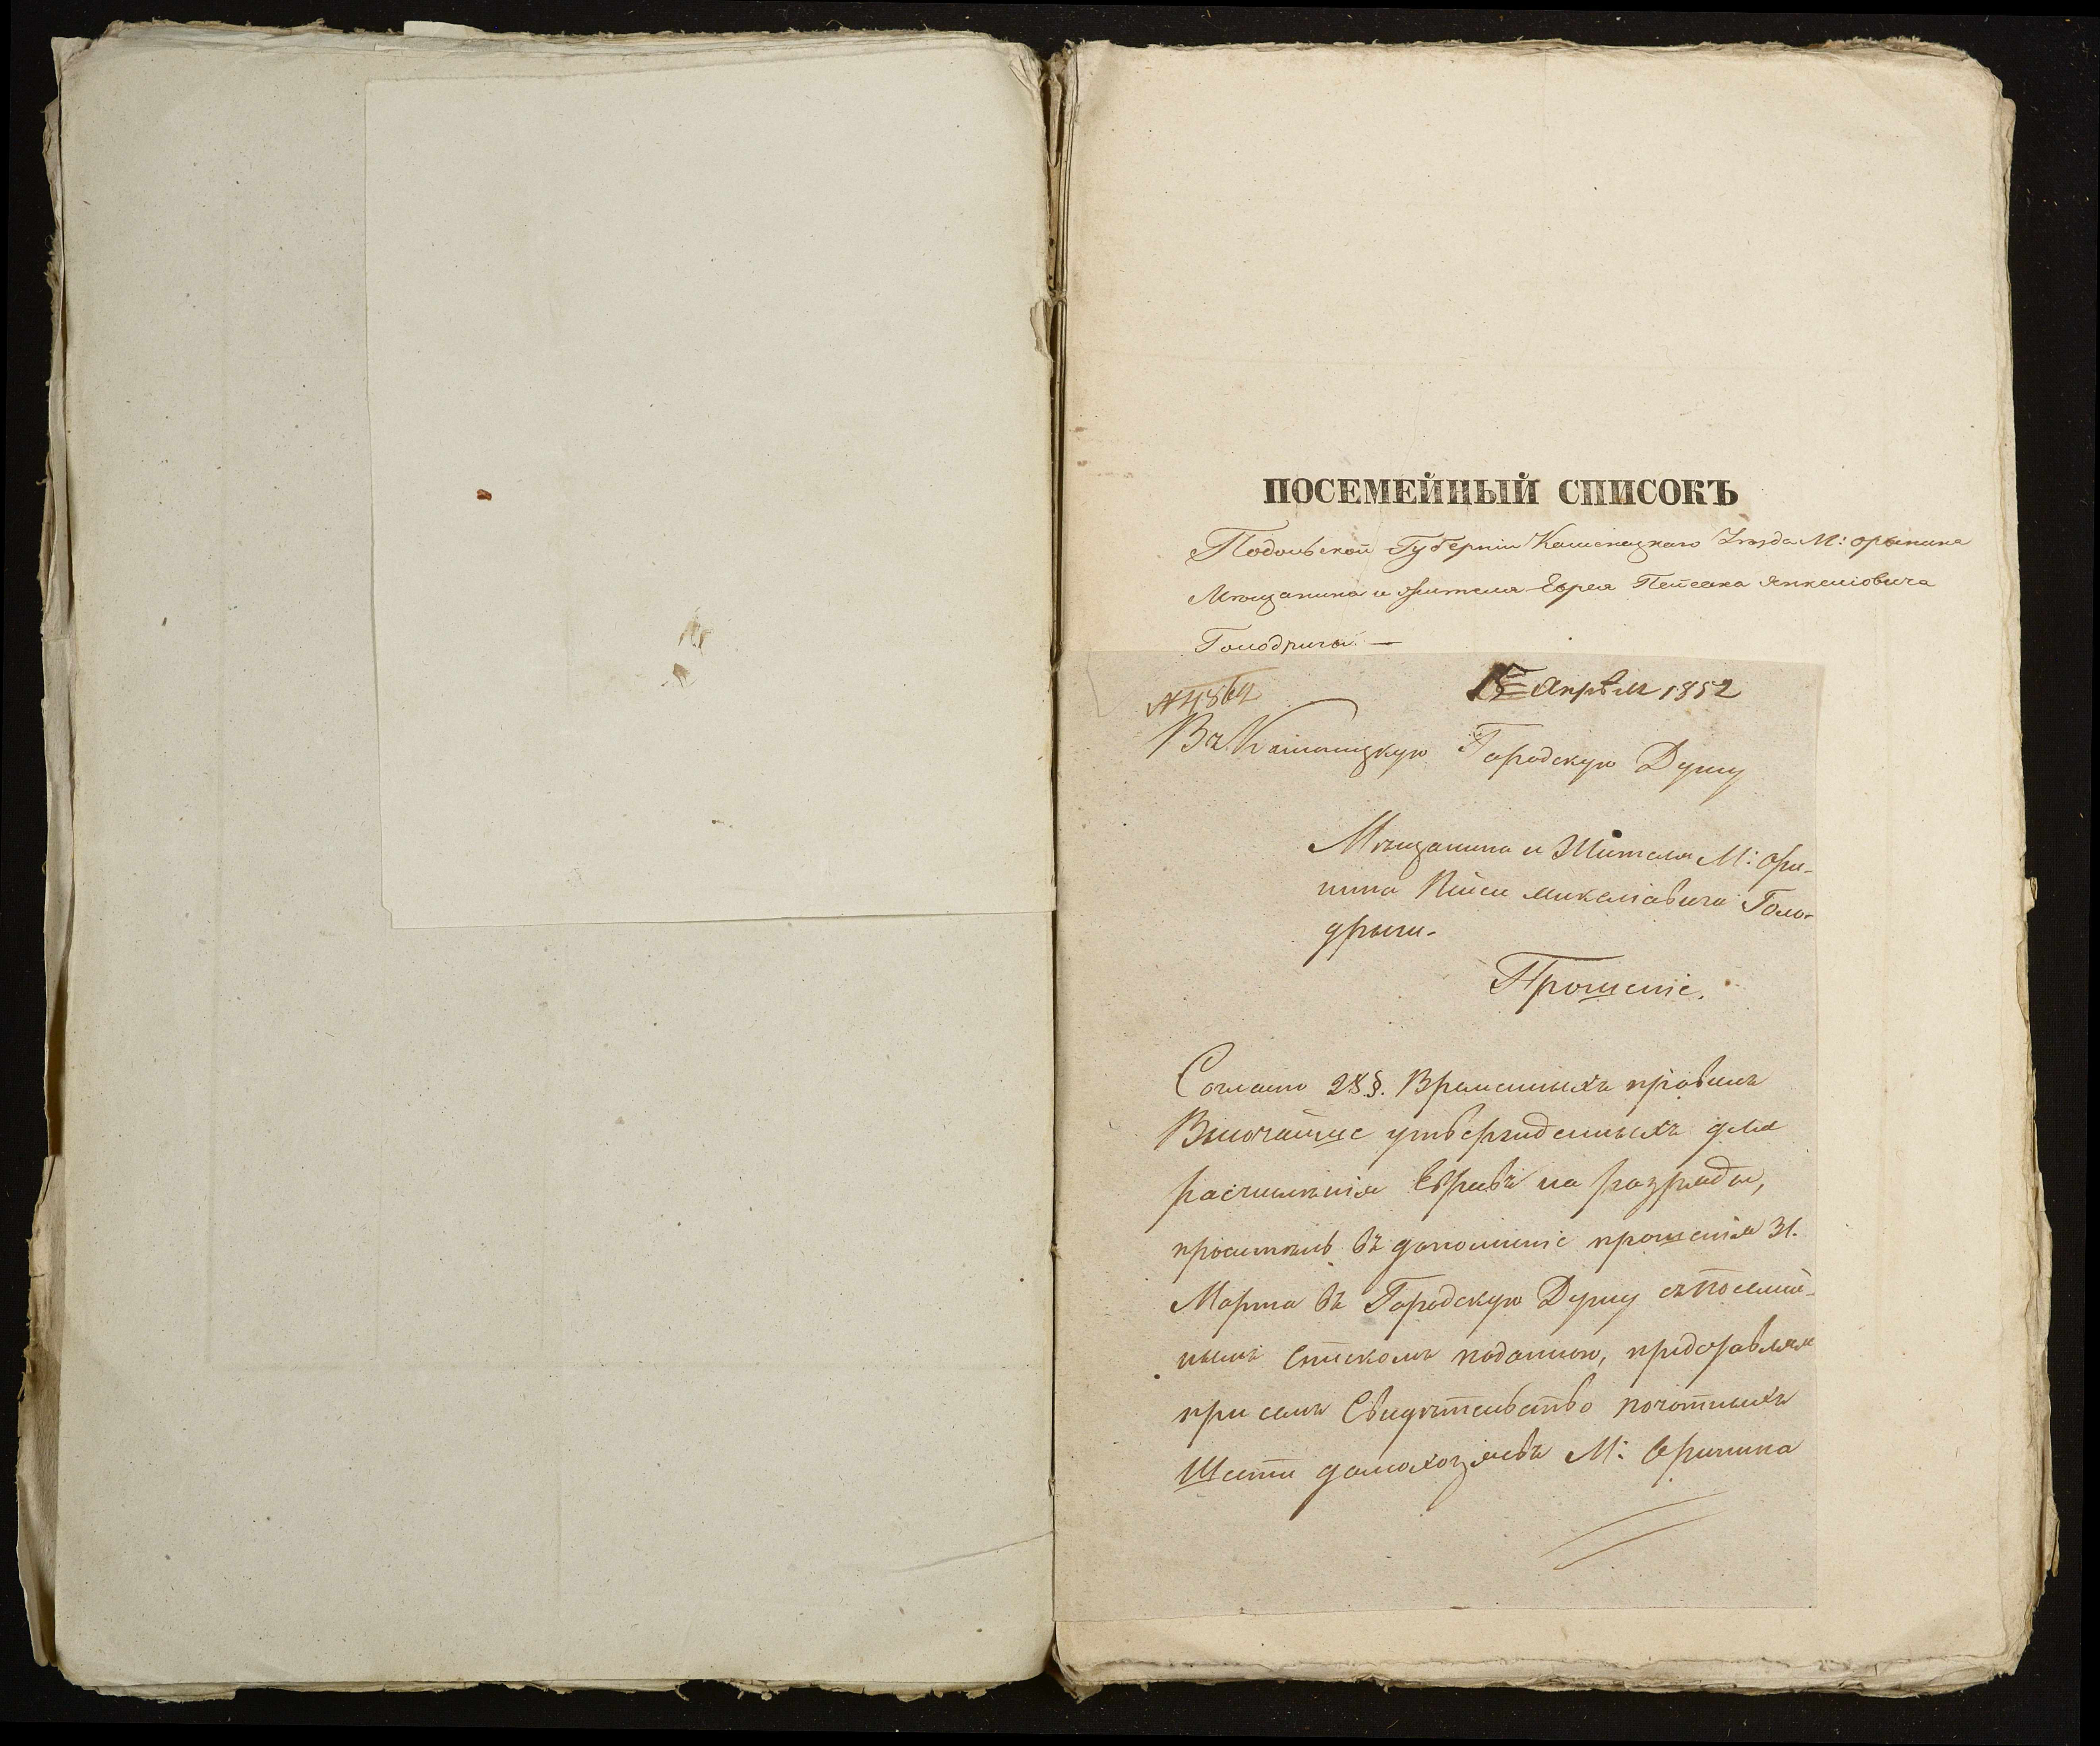 ПОСЕМЕЙНЫЙ СПИСОКЪ
Подольской Губерніи Каменецкаго Уѣзда М: Орынина
Мѣщанина и жителя Еврея Пейсаха Янкеліовича
Голодриги. —
№ 4862
15 Апрѣля 1852
Въ Каменецкую Городскую Думу
Мѣщанина и Жителя М: Ори-
нина Голо-
дрыги.
Прошеніе.
Согласно 28 §. Временныхъ правилъ
Высочайше утвержденныхъ для
расчисленія Евреевъ на разряды,
въ дополненіе прошенія 31.
Марта въ Городскую Думу съ посемей-
нымъ Спискомъ поданного, представляя
при семъ Свидѣтельство почотныхъ
Шести домохозяевъ М: Оринина